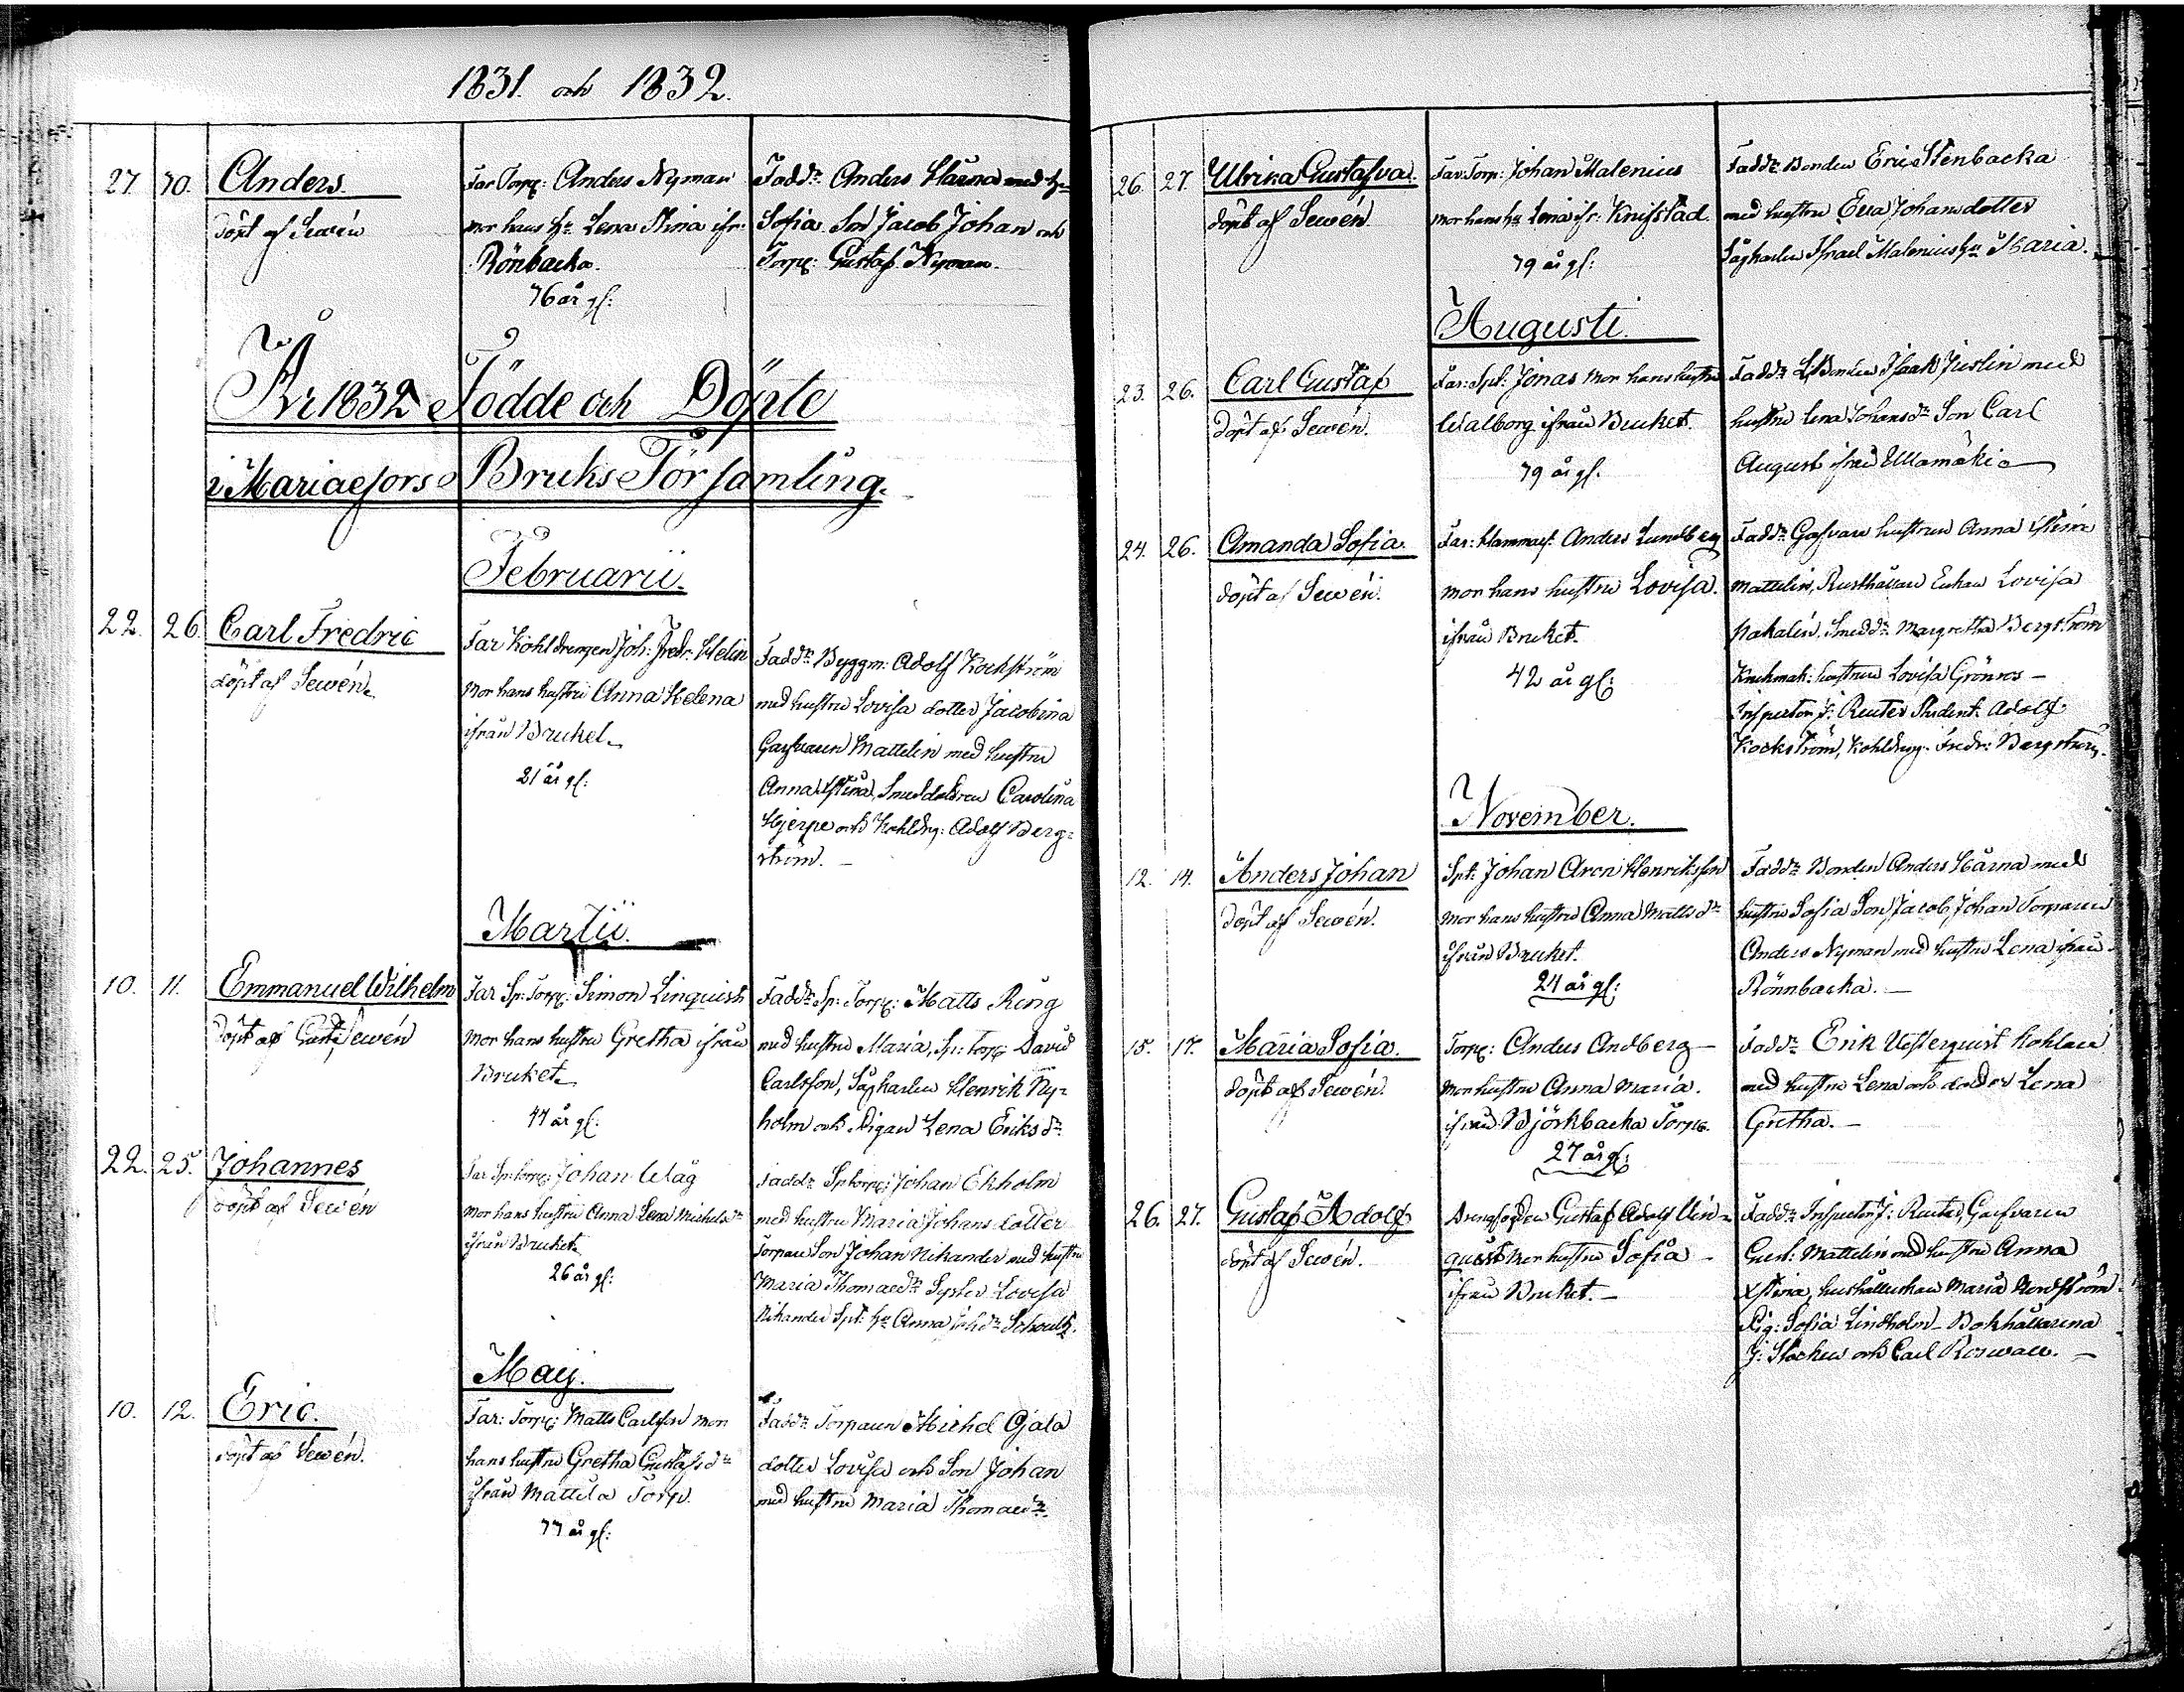 1831. och 1832.
27. 30. Anders. Far Torp: Anders Nyman Fadd:r Anders Skärna med h:u
döpt af Sewén mor hans h:u Lena Stina ifr: Sofia Son Jacob Johan och
Rönbacka. Torp: Gustaf Nyman.
36 år gl:
År 1832 Födde och Döpte
i Mariaefors Bruks Församling.
Februarii.
22. 26. Carl Fredric Far Kohldrengen Joh: Fredr: Helin Fadd:r Byggm: Adolf Kockström
döpt af Sewén. Mor hans hustru Anna Helena med hustru Lovisa dotter Jacobina
ifrån Bruket. Garfvaren Mattelin med hustru
21 år gl: Anna Stina, Smeddottren Carolina
Hjerpe och Kohldrg: Adolf Berg=
ström. —
Martii.
10. 11. Emmanuel Wilhelm Far Sp: Torp: Simon Linquist Fadd:r Sp: Torp: Matts Ring
döpt af Sewén Mor hans hustru Gretha ifrån med hustru Maria, Sp: Torp David
Bruket. Carlsson, Sågkarlen Henrik Ny=
44 år gl: holm och Pigan Lena Eriks d:r
22. 25. Johannes Far Sp: Torp: Johan Wåg Fadd:r Sp torp: Johan Ekholm
döpt af Sewén Mor hans hustru Anna Lena Michels d:r med hustru Maria Johans dotter
ifrån Bruket. Torpare Son Johan Nikander med hustru
26 år gl: Maria Thomae d:r Syster Lovisa
Nikander Spt: h:u Anna Joh d:r Schoultz.
Maij.
10. 12. Eric. Far: Torp: Matts Carlsson Mor Fadd:r Torparen Michel Ojala
döpt af Sewén. hans hustru Gretha Gustafs d:r dotter Lovisa och Son Johan
ifrån Mattila Torp. med hustru Maria Thomae d:r
37 år gl:
26. 27. Ulrika Gustafva. Far: Torp: Johan Malenius Fadd:r Bonden Eric Stenbacka
döpt af Sewén mor hans h:u Lena ifr: Knifstad. med hustru Eva Johansdotter
39 år gl: Sågkarlen Israel Malenius h:u Maria.
Augusti.
23. 26. Carl Gustaf Far: Spt: Jonas Mor hans hustru Fadd:r Bonden Isaak Juslin med
döpt af Sewén. Walborg ifrån Bruket. hustru Lena Johans d:r Son Carl
39 år gl. August ifrån Ullamäki
24. 26. Amanda Sofia. Far: Hammarsm: Anders Lundberg Fadd:r Garfvare hustrun Anna Stina
döpt af Sewén. mor hans hustru Lovisa. Mattelin, Rusthållare Enkan Lovisa
ifrån Bruket. Smed d:r Margretha Bergström
42 år gl: hustrun Lovisa Grönros —
Inspector J: Reuter Student Adolf
Kockström, Kohldreng: Fredr: Bergström.
November.
12. 14. Anders Johan Spt: Johan Aron Henriksson Fadd:r Bonden Anders Skärna med
döpt af Sewén. Mor hans hustru Anna Matts d:r hustru Sofia Son Jacob Johan Torparen
ifrån Bruket. Anders Nyman med hustru Lena ifrån
24 år gl: Rönnbacka. —
15. 17. Maria Sofia. Torp: Anders Andberg — Fadd:r Erik Westerquist Kohlare
döpt af Sewén. Mor hustru Anna Maria. med hustru Lena och dotter Lena
ifrån Björkbacka Torp. Gretha. —
27 år gl:
26. 27. Gustaf Adolf Drengfogden Gustaf Adolf Lind= Fadd:r Inspector J: Reuter, Garfvaren
döpt af Sewén. quist Mor hustru Sofia — Gust: Mattelin med hustru Anna
ifrån Bruket. — Xstina, hushållerskan Maria Nordström
Pig: Sofia Lindholm — Bokhållarena
J: Stocken och Carl Roswall. —